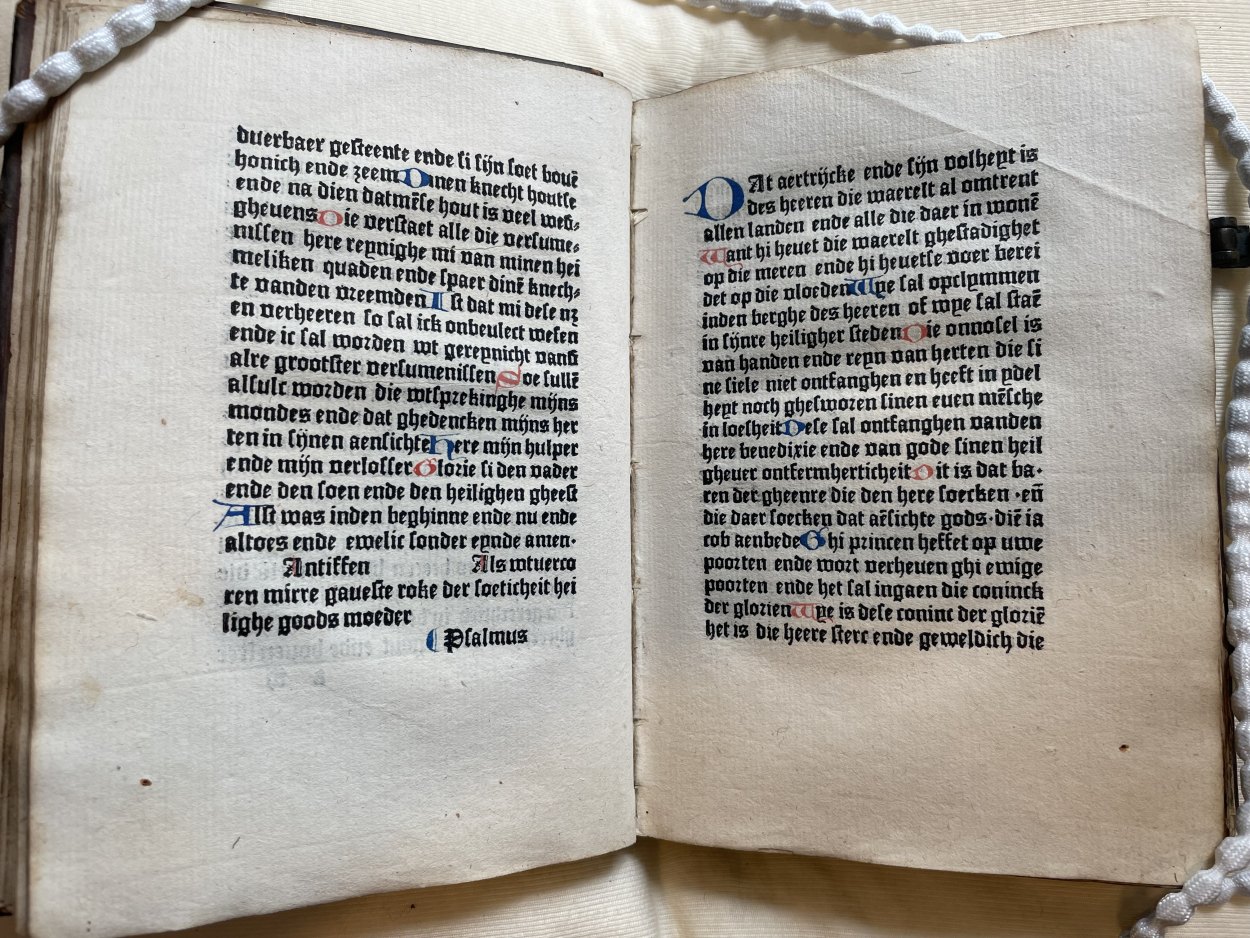 duerbaer gesteente ende si sijn soet bouē
honich ende zeem Dinen knecht houtse
ende na dien datmēse hout is veel wed⸗
ghevens Die verstaet alle die versume⸗
nissen here reynighe mi van minen hei
meliken quaden ende spaer dinē knech⸗
te vanden vreemden Ist dat mi dese nz
en verheeren so sal ick onbeulect wesen
ende ic sal worden wt gereynicht vand
alre grootster versumenissen Soe sullē
alsulc worden die wtsprekinghe mijns
mondes ende dat ghedencken mijns her
ten in sijnen aensichte Here mijn hulper
ende mijn verlosser Glorie si den vader
ende den soen ende den heilighen gheest
Alst was inden beghinne ende nu ende
altoes ende ewelic sonder eynde amen·
Antiffen Als wtuerco
ren mirre gaueste roke der soeticheit hei
lighe goods moeder
Psalmus
DAt aertrijcke ende sijn volheyt is
des heeren die waerelt al omtrent
allen landen ende alle die daer in wonē
Want hi heuet die waerelt ghestadighet
op die meren ende hi heuetse voer berei
det op die vloeden Wye sal opclymmen
inden berghe des heeren of wye sal staē
in sijnre heiligher steden Die onnosel is
van handen ende reyn van herten die si
ne siele niet ontfanghen en heeft in ydel
heyt noch ghesworen sinen euen mēsche
in loesheit Dese sal ontfanghen vanden
here benedixie ende van gode sinen heil
gheuer ontfermherticheit Dit is dat ba·
ren der gheenre die den here soecken ·eñ
die daer soecken dat aēsichte gods·diē ia
cob aenbede Ghi princen heffet op uwe
poorten ende wort verheuen ghi ewige
poorten ende het sal ingaen die coninck
der glorien Wye is dese coninc der gloriē
het is die heere sterc ende geweldich die